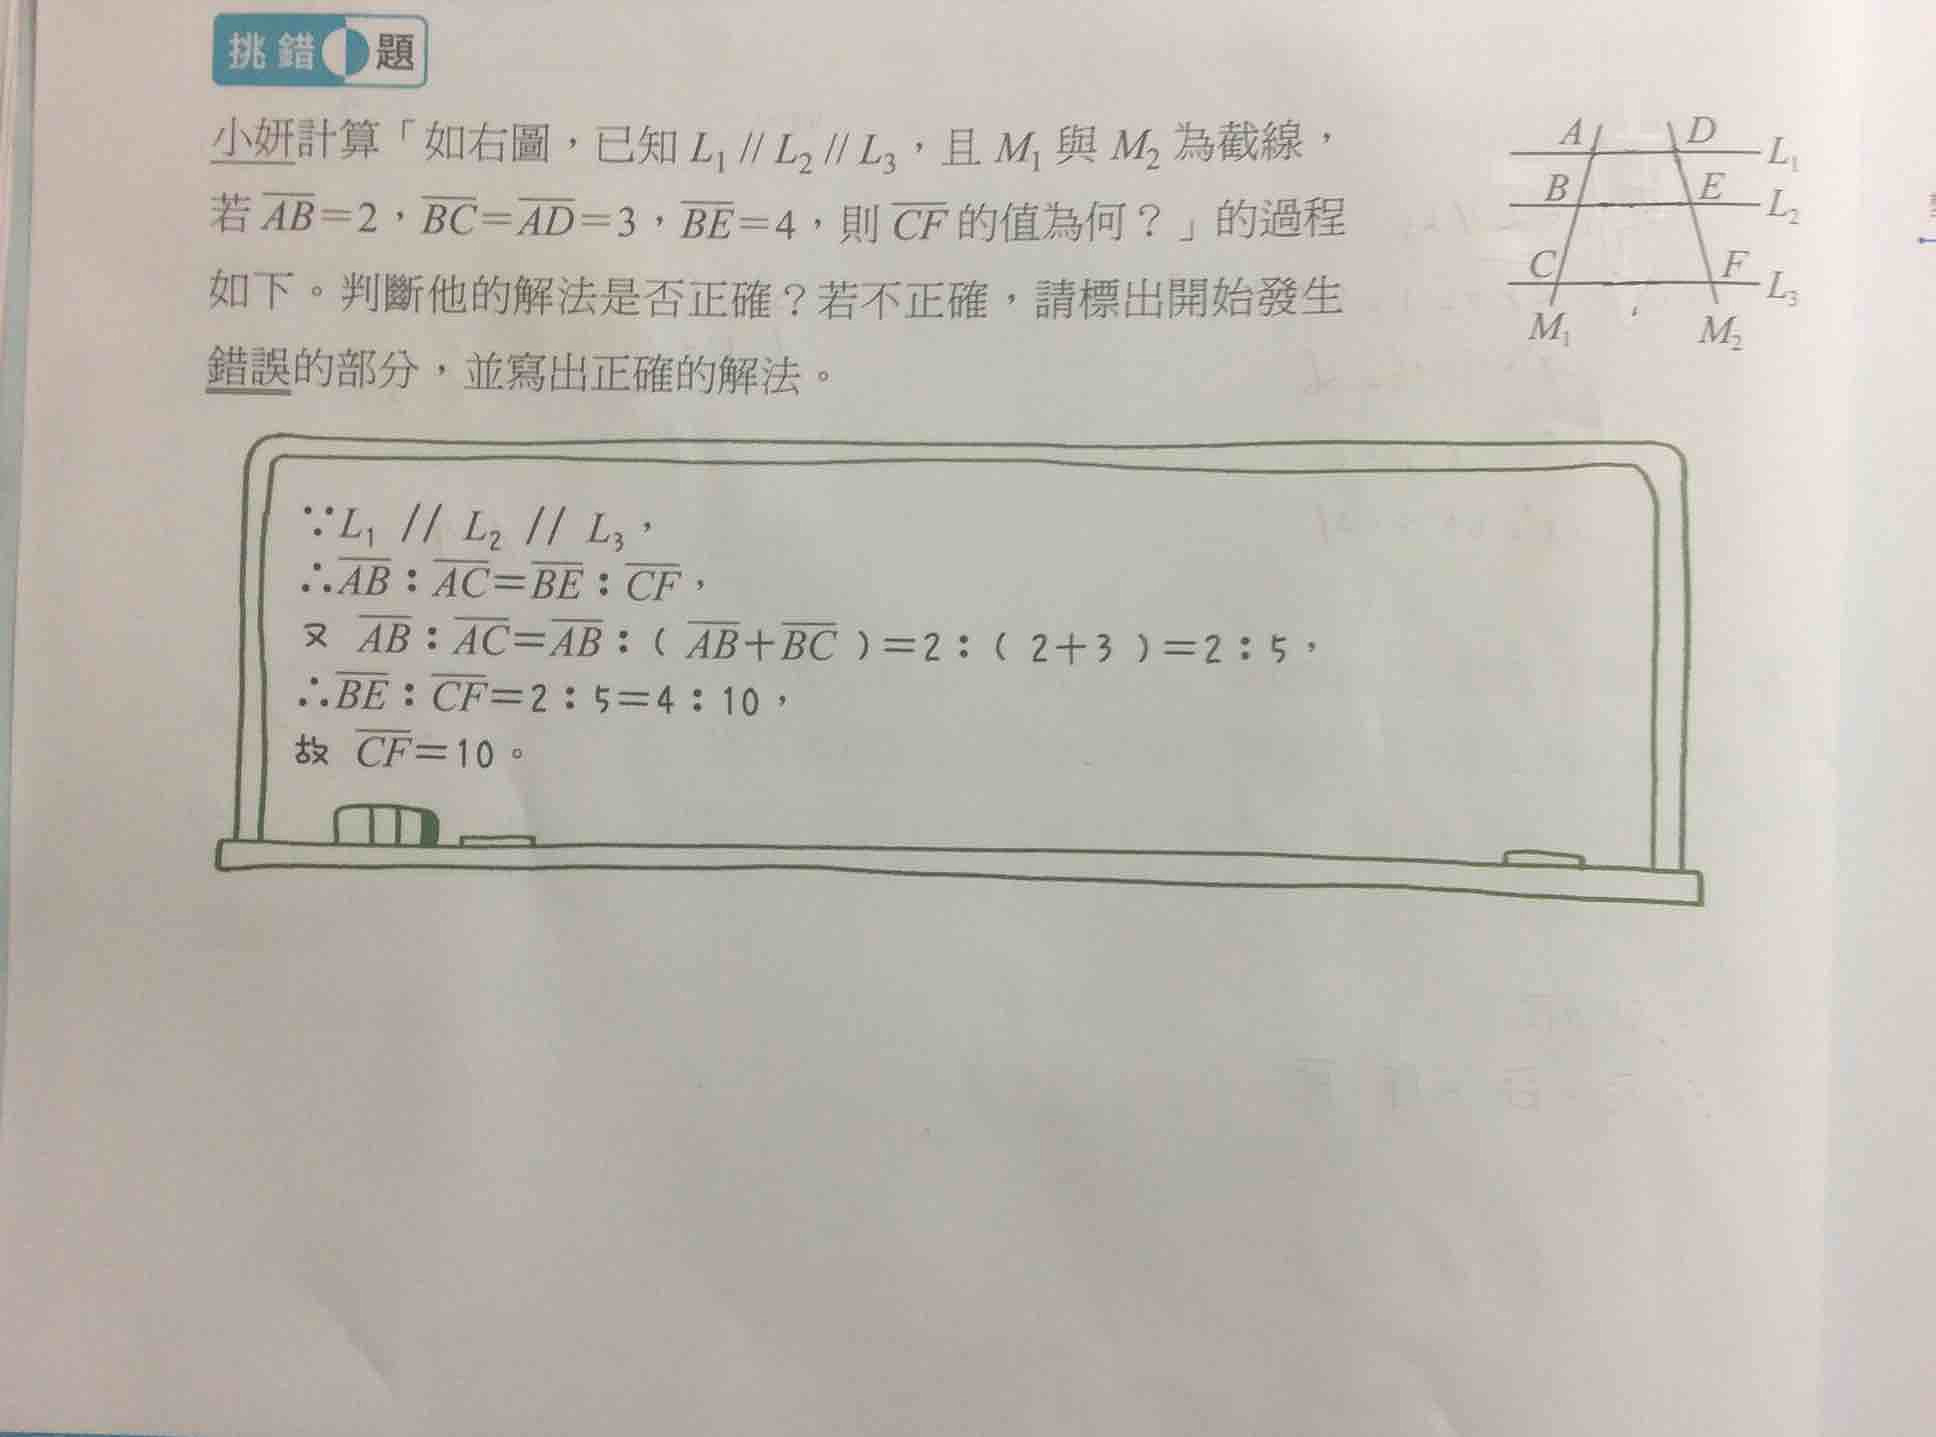 挑錯題
小妍計算「如右圖，已知 L₁ // L₂ // L₃，且 M₁ 與 M₂ 為截線，
若 A̅B̅=2，B̅C̅=A̅D̅=3，B̅E̅=4，則 C̅F̅ 的值為何？」的過程
如下。判斷他的解法是否正確？若不正確，請標出開始發生
錯誤的部分，並寫出正確的解法。
A D L₁
B E L₂
C F L₃
M₁ M₂
∵L₁ // L₂ // L₃，
∴A̅B̅：A̅C̅=B̅E̅：C̅F̅，
又 A̅B̅：A̅C̅=A̅B̅：( A̅B̅+B̅C̅ )=2：( 2+3 )=2：5，
∴B̅E̅：C̅F̅=2：5=4：10，
故 C̅F̅=10。